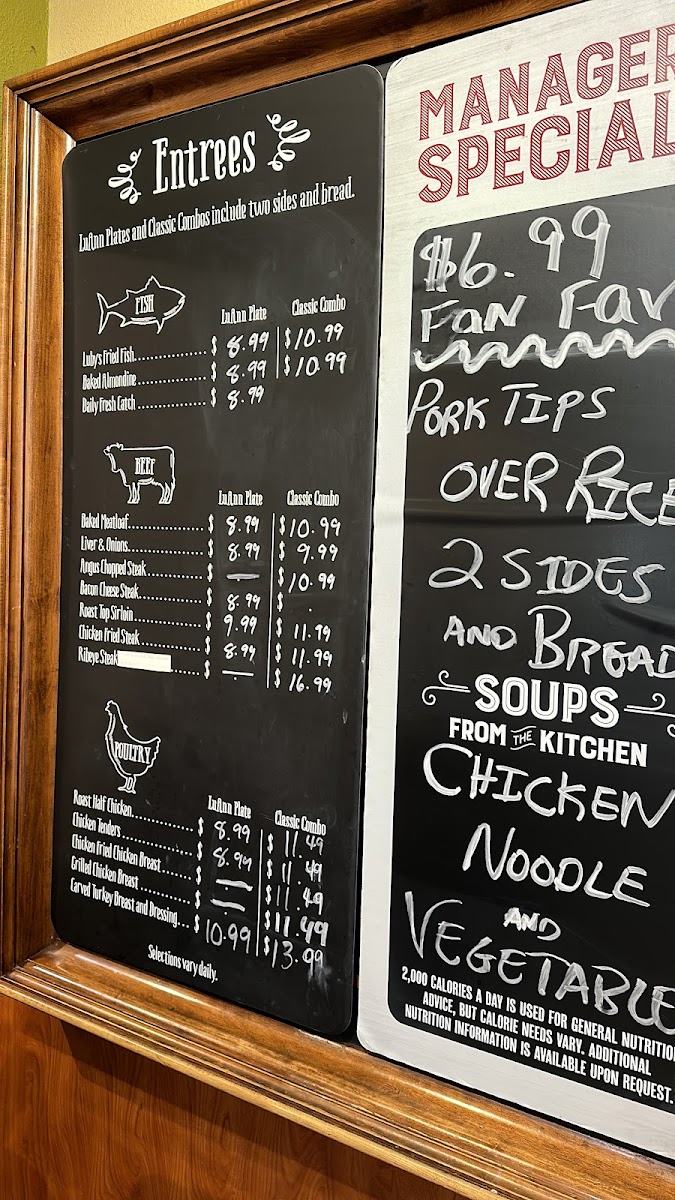 Entrees
LuAnn Plates and Classic Combos include two sides and bread.
FISH
LuAnn Plate Classic Combo
Luby's Fried Fish............... $ 8.99 $10.99
Baked Almondine............... $ 8.99 $10.99
Daily Fresh Catch............... $ 8.99
BEEF
LuAnn Plate Classic Combo
Baked Meatloaf............... $ 8.99 $10.99
Liver & Onions............... $ 8.99 $ 9.99
Angus Chopped Steak............... $ — $10.99
Bacon Cheese Steak............... $ 8.99 $ .
Roast Top Sirloin............... $ 9.99 $ 11.99
Chicken Fried Steak............... $ 8.99 $ 11.99
Ribeye Steak ...... $ — $ 16.99
POULTRY
LuAnn Plate Classic Combo
Roast Half Chicken............... $ 8.99 $ 11.49
Chicken Tenders............... $ 8.99 $ 11.49
Chicken Fried Chicken Breast............... $ — $ 11.49
Grilled Chicken Breast............... $ — $ 11.49
Carved Turkey Breast and Dressing... $ 10.99 $13.99
Selections vary daily.
MANAGER
SPECIAL
$6.99
FAN FAV
PORK TIPS
OVER RICE
2 SIDES
AND BREAD
SOUPS
FROM THE KITCHEN
CHICKEN
NOODLE
AND
VEGETABLE
2,000 CALORIES A DAY IS USED FOR GENERAL NUTRITION
ADVICE, BUT CALORIE NEEDS VARY. ADDITIONAL
NUTRITION INFORMATION IS AVAILABLE UPON REQUEST.